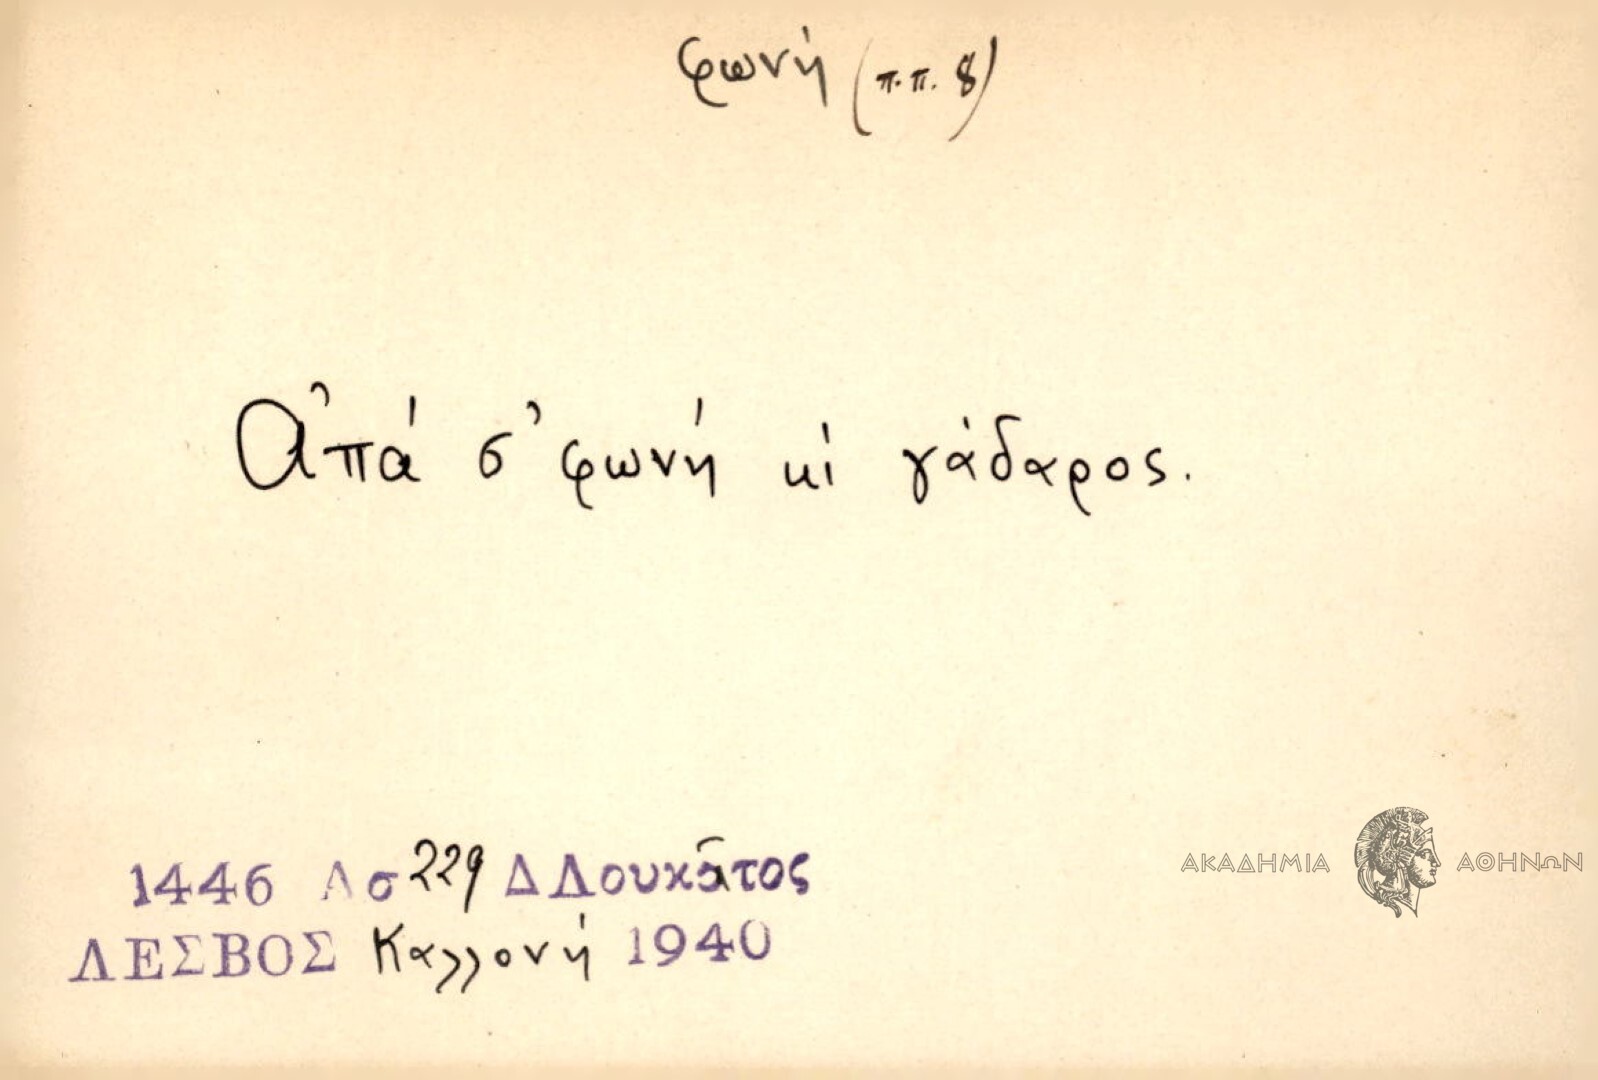 φωνή (π.π. 8)
Ἀπά σ' φωνή κὶ γάδαρος.
1446 Λ σ 229 Δ Λουκᾶτος
ΛΕΣΒΟΣ Καλλονή 1940
ΑΚΑΔΗΜΙΑ ΑΘΗΝΩΝ